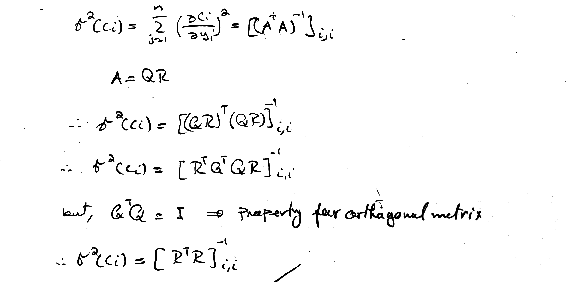 σ²(Ci) = Σ_{j=1}^{n} (∂Ci/∂yj)² = [(AᵀA)⁻¹]_{i,i}
A = QR
∴ σ²(Ci) = [(QR)ᵀ(QR)]⁻¹_{i,i}
∴ σ²(Ci) = [RᵀQᵀQR]⁻¹_{i,i}
but, QᵀQ = I ⇒ property for orthogonal metrix
∴ σ²(Ci) = [RᵀR]⁻¹_{i,i}